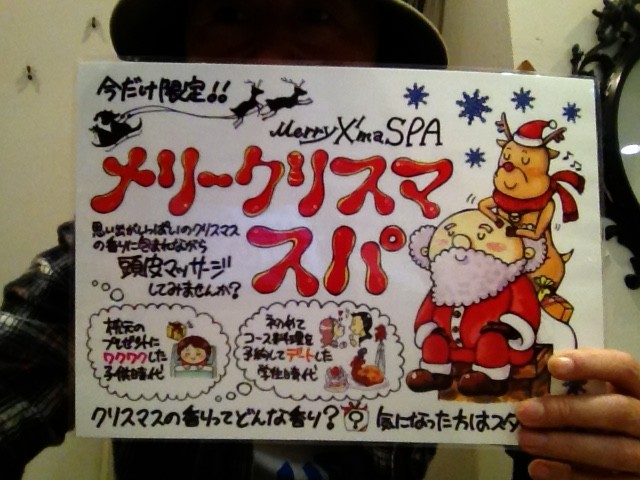 今だけ限定!!
Merry X'maSPA
メリークリスマ
スパ
思い出がいっぱいのクリスマス
の香りに包まれながら
頭皮マッサージ
してみませんか?
枕元の
プレゼントに
ワクワクした
子供時代
初めて
コース料理を
予約してデートした
学生時代
クリスマスの香りってどんな香り? 気になった方はスタ